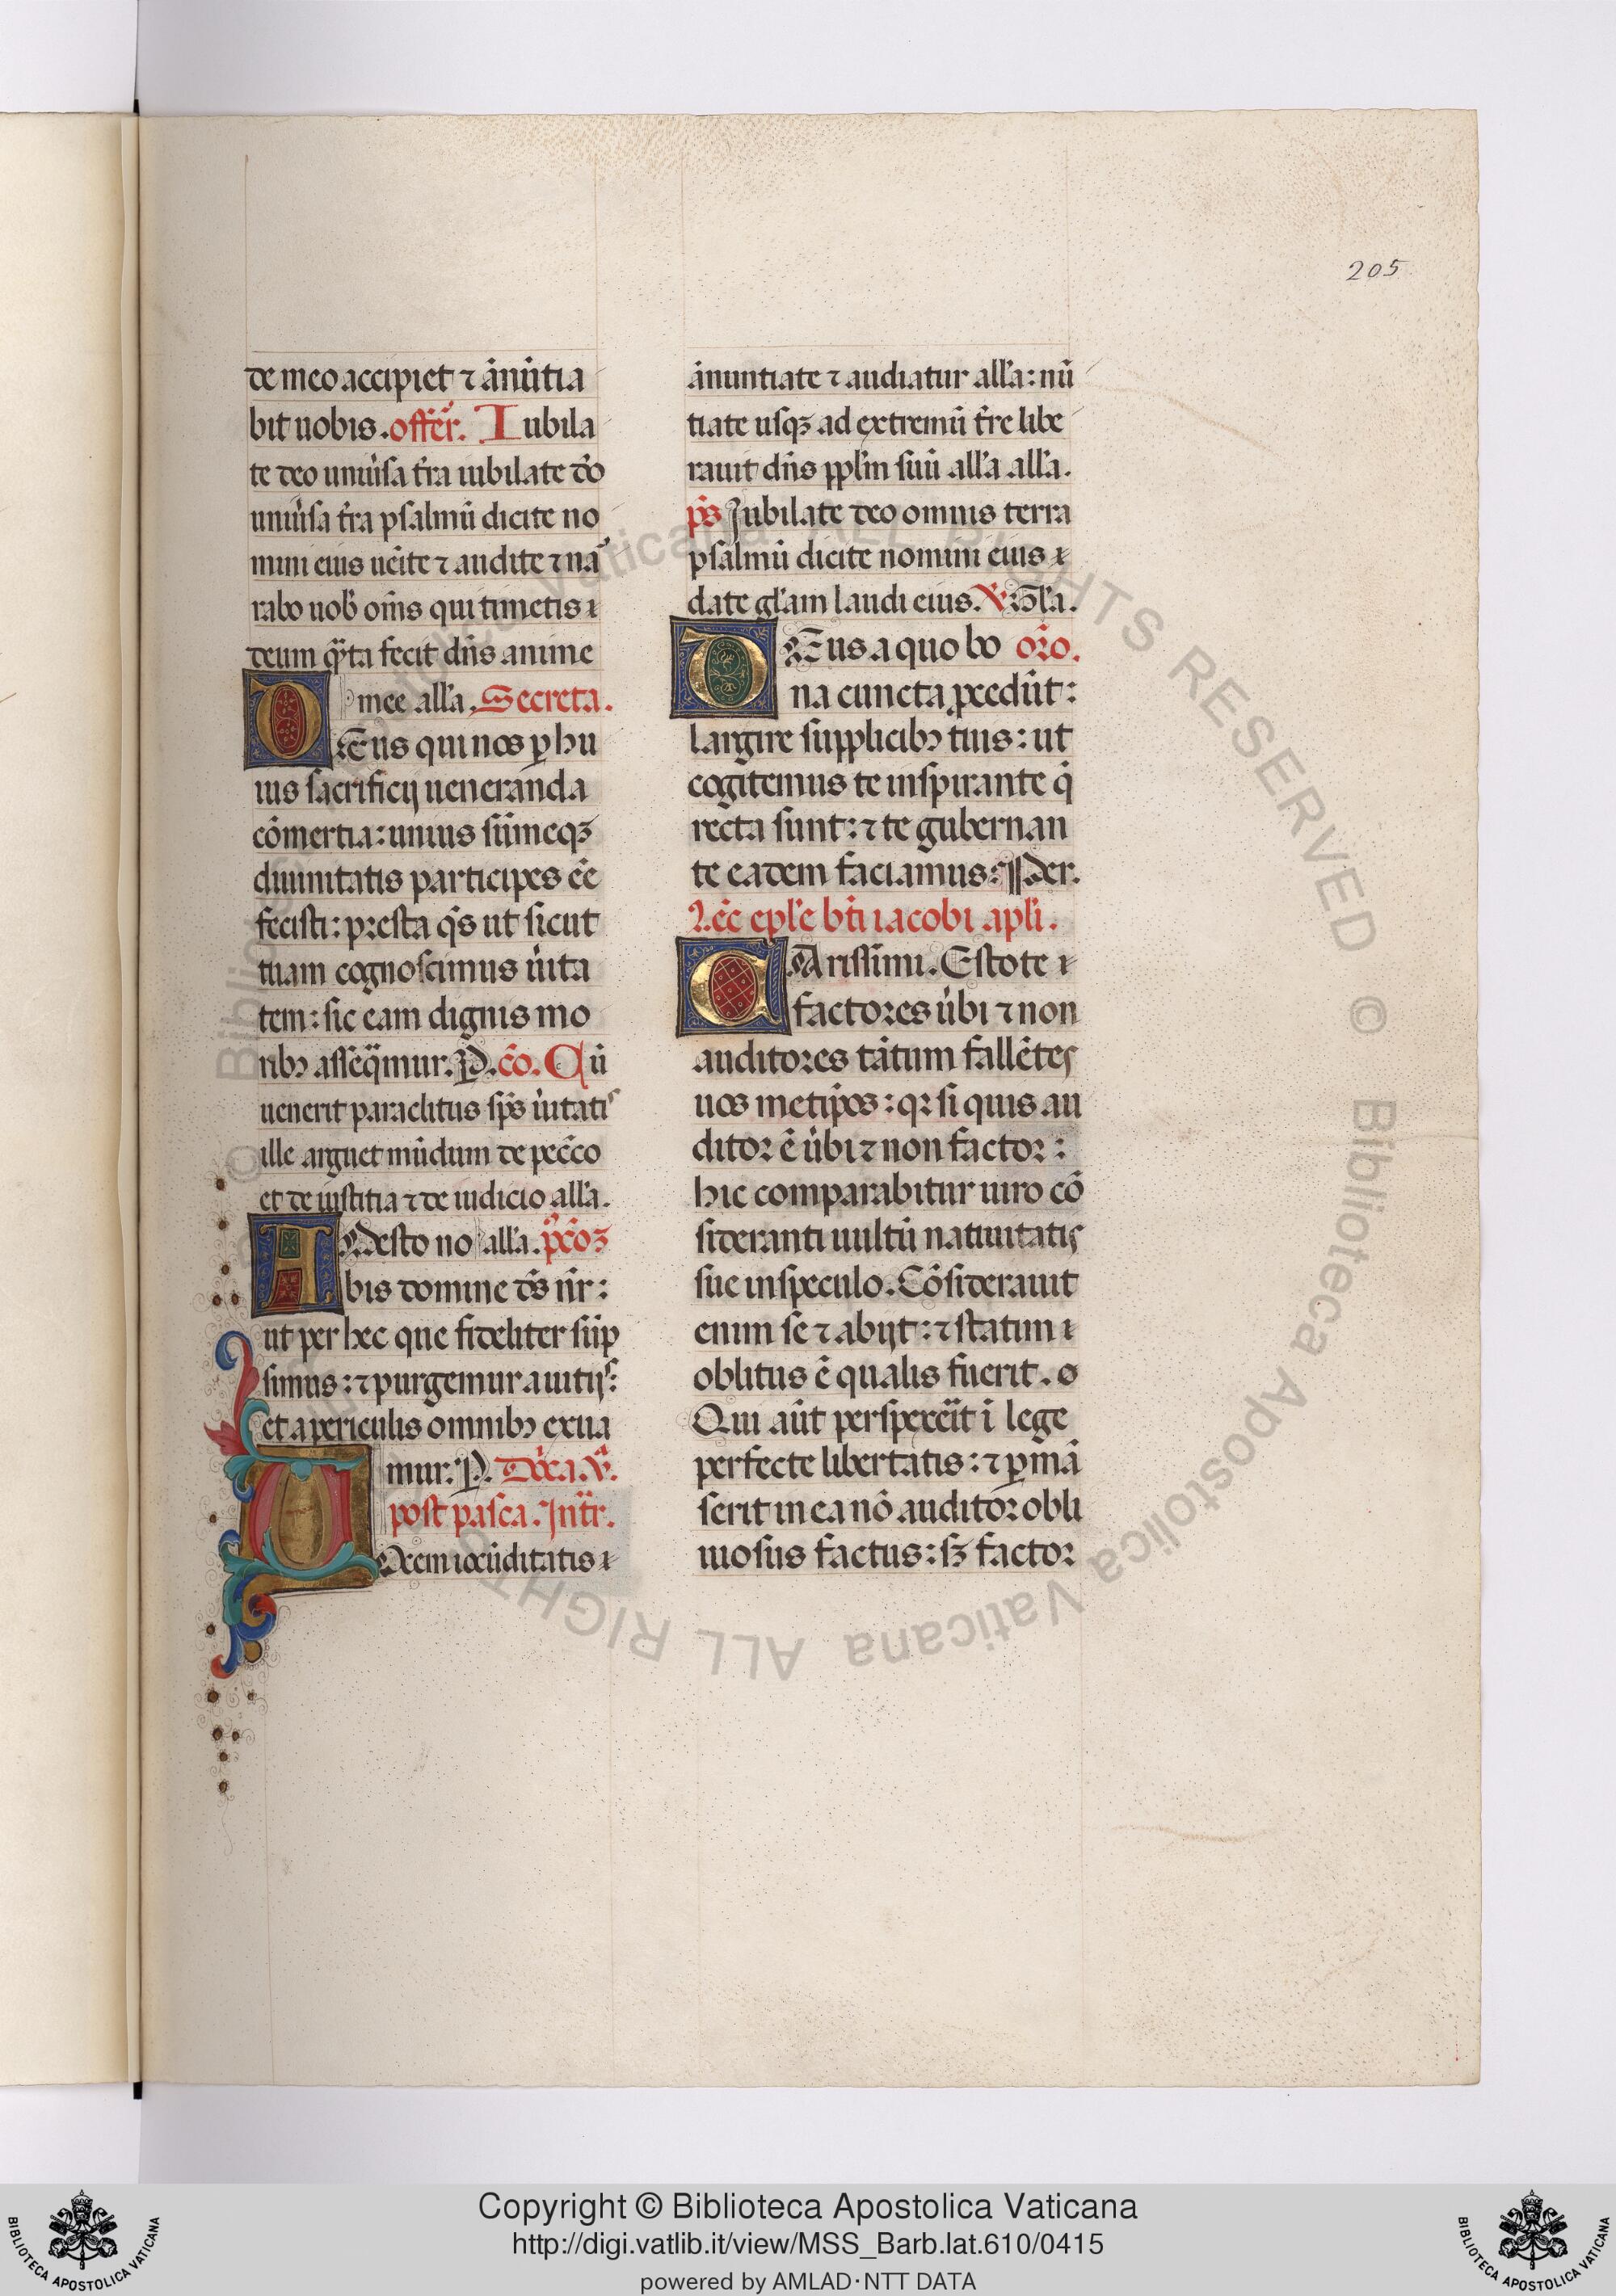 205
de meo accipiet ⁊ ānūtia
bit uobis. offer̄. Iubila
te deo uniu̇sa t̄ra iubilate dō
uniu̇sa t̄ra psalmū dicite no
mini eius uēite ⁊ audite ⁊ na
rabo uob̄ om̄s qui timetis
deum qͣ̄ta fecit dn̄s anime
mee all̄a. Secreta.
DEus qui nos ꝑ hu
ius sacrificij ueneranda
cōmertia: unius sūmeqꝫ
diuinitatis participes ēē
fecisti: presta q̄s ut sicut
tuam cognoscimus u̇ita
tem: sic eam dignis mo
ribꝰ asseqͣmur. P. cō. Cū
uenerit paraclitus sp̄s u̇itatis
ille arguet mūdum de pecc̄o
et de iustitia ⁊ de iudicio all̄a.
ADesto no all̄a. p̄cōꝫ
bis domine ds̄ nr̄:
ut per hec que fideliter sūp
simus: ⁊ purgemur a uitijs:
et a periculis omnibꝰ exua
mur. P. Dōca. v.
post pasca. Intr̄.
VOcem iocūditatis
ānuntiate ⁊ audiatur all̄a: nū
tiate usqꝫ ad extremū t̄re libe
rauit dn̄s ppl̄m suū all̄a all̄a.
ps̄ Jubilate deo omnis terra
psalmū dicite nomini eius
date gl̄am laudi eius. V. Gl̄a.
DEus a quo bo or̄o.
na cuncta ꝓcedūt:
largire supplicibꝰ tuis: ut
cogitemus te inspirante q̄
recta sunt: ⁊ te gubernan
te eadem faciamus: Per.
Lec̄ epl̄e bt̄i iacobi apl̄i.
CArissimi. Estote
factores u̇bi ⁊ non
auditores tātum fallētes
uos metip̄os: qꝛ si quis au
ditor ē u̇bi ⁊ non factor:
hic comparabitur uiro cō
sideranti uultū natiuitatis
sue in speculo. Cōsiderauit
enim se ⁊ abijt: ⁊ statim
oblitus ē qualis fuerit.
Qui aūt perspexėit ī lege
perfecte libertatis: ⁊ ꝑmā
serit in ea nō auditor obli
uiosus factus: sꝫ factor
© Biblioteca Apostolica Vaticana ALL RIGHTS RESERVED © Biblioteca Apostolica Vaticana ALL RIGHTS
Copyright © Biblioteca Apostolica Vaticana
http://digi.vatlib.it/view/MSS_Barb.lat.610/0415
powered by AMLAD·NTT DATA
BIBLIOTECA APOSTOLICA VATICANA
BIBLIOTECA APOSTOLICA VATICANA